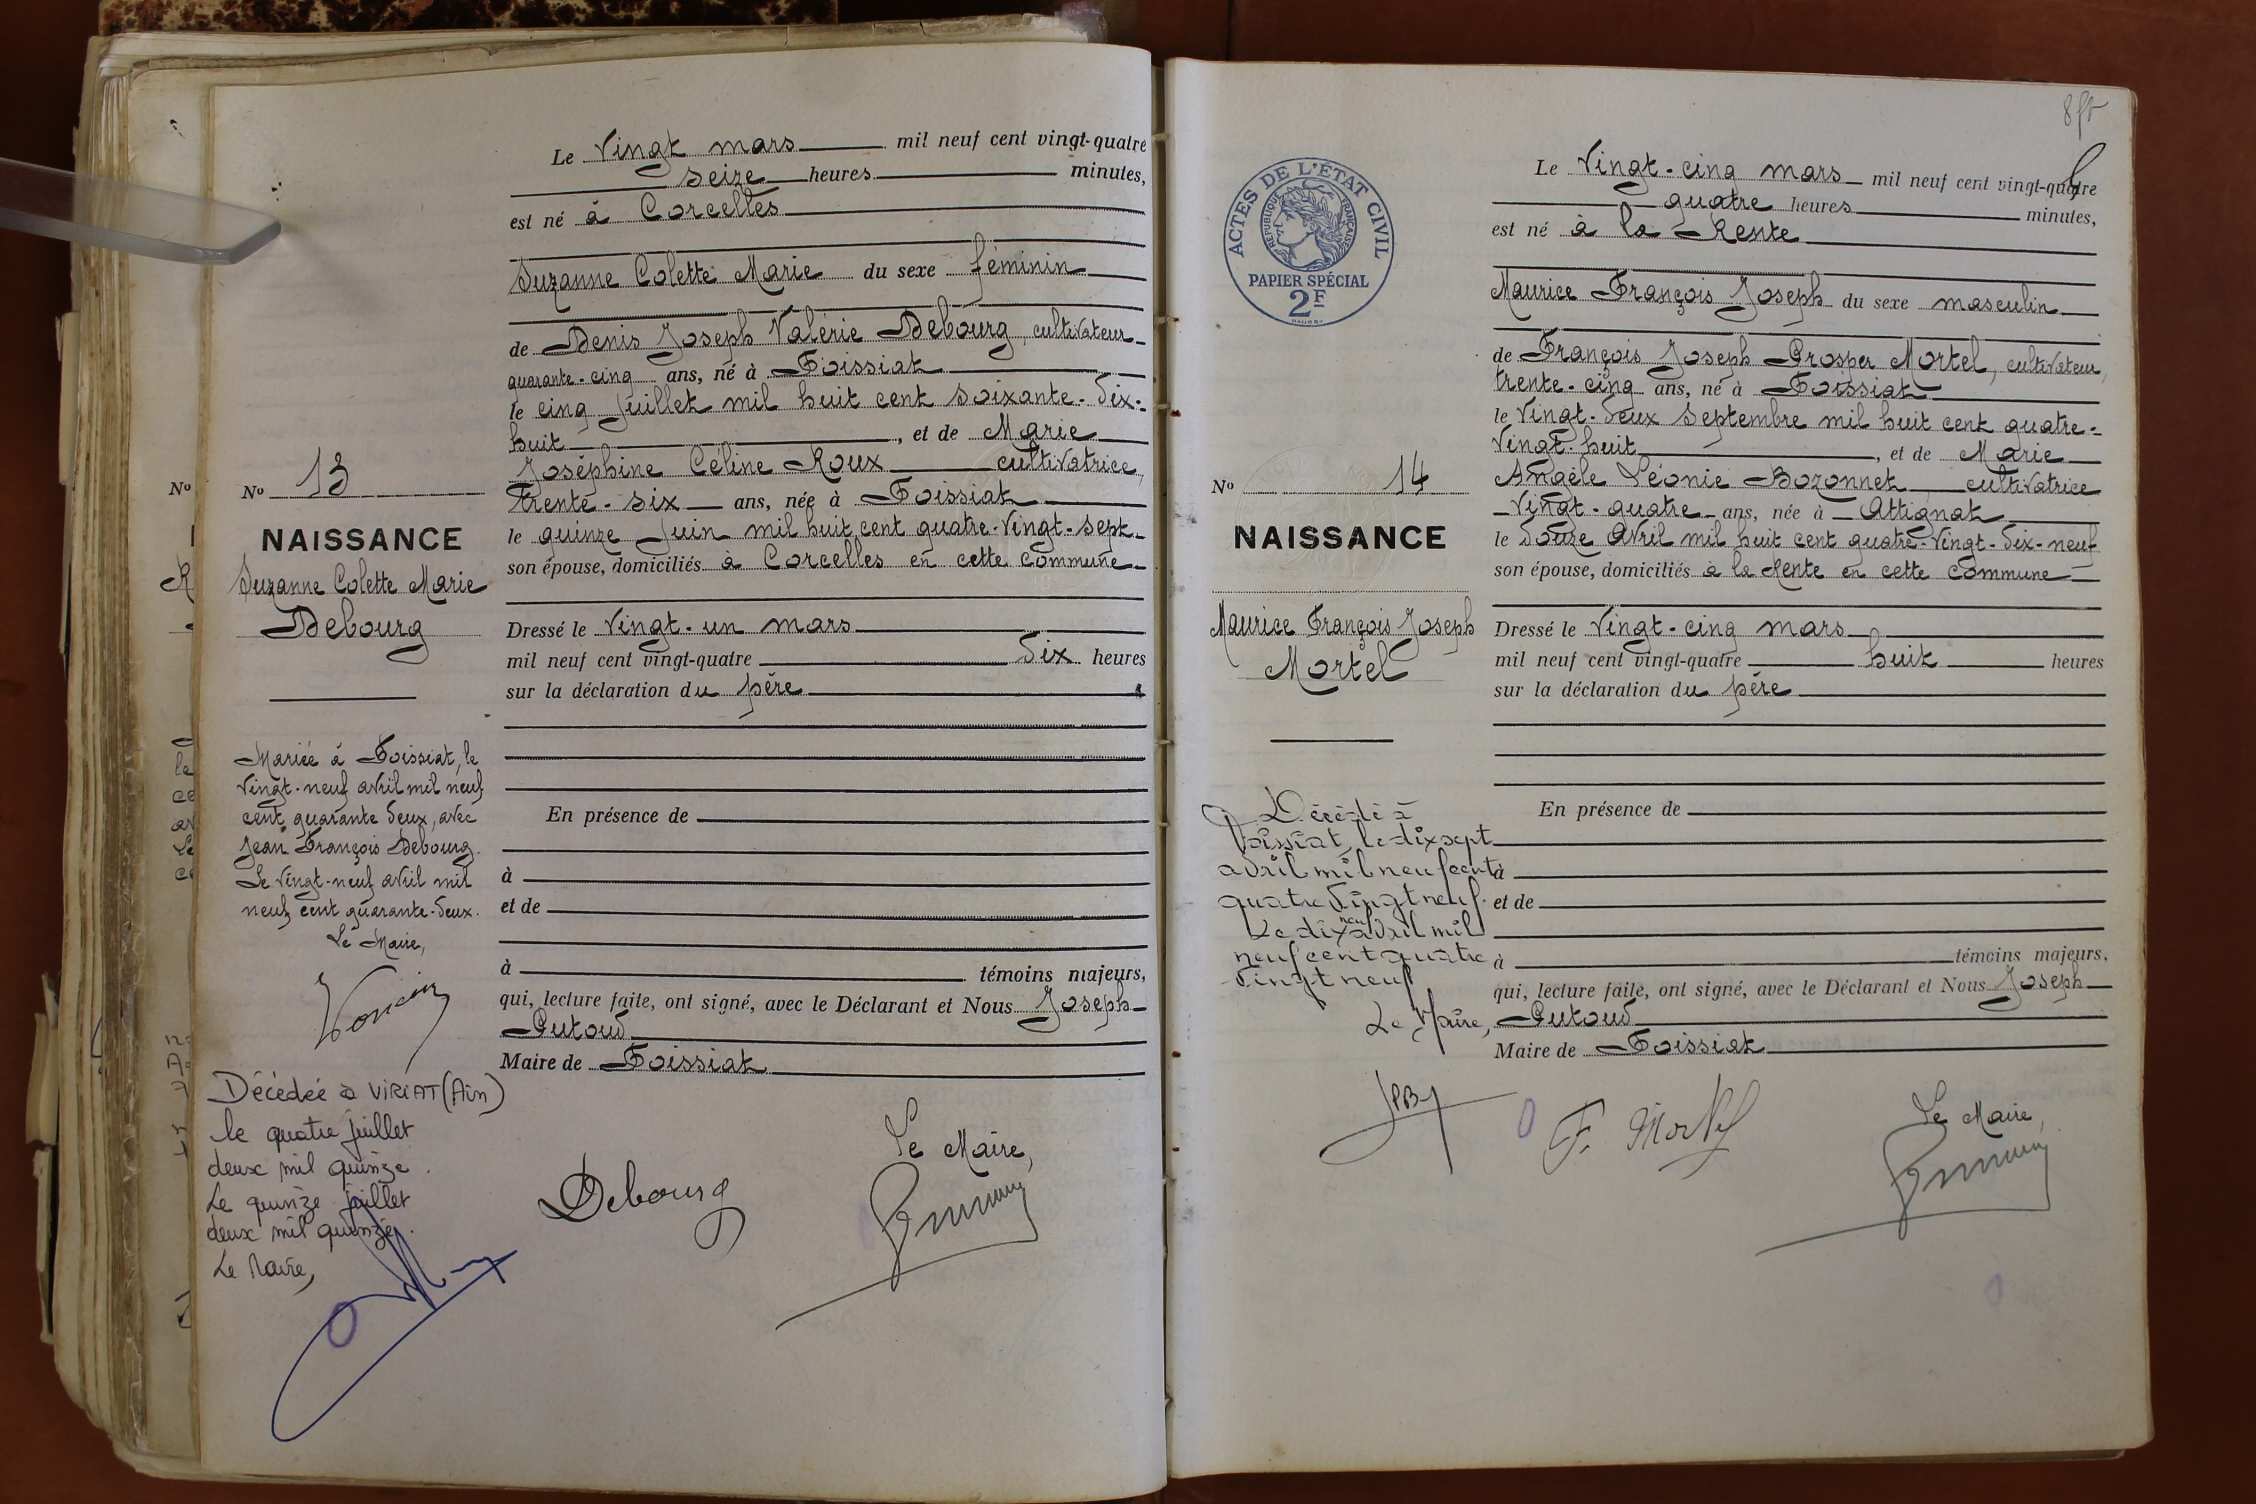 Le Vingt mars mil neuf cent vingt-quatre
seize heures minutes,
est né à Corcelles
Suzanne Colette Marie du sexe féminin
de Denis Joseph Valérie Debourg, cultivateur
quarante-cinq ans, né à Foissiat
le cinq juillet mil huit cent soixante-dix-
huit, et de Marie
Joséphine Céline Roux cultivatrice,
trente-six ans, née à Foissiat
le quinze juin mil huit cent quatre-vingt-sept
son épouse, domiciliés à Corcelles en cette commune
Dressé le vingt-un mars
mil neuf cent vingt-quatre dix heures
sur la déclaration du père
En présence de
à
et de
à témoins majeurs,
qui, lecture faite, ont signé, avec le Déclarant et Nous Joseph
Putoud
Maire de Foissiat
Le Maire,
Debourg
No
No 13
NAISSANCE
Suzanne Colette Marie
Debourg
Mariée à Foissiat, le
vingt-neuf avril mil neuf
cent quarante deux, avec
Jean François Debourg.
Le vingt-neuf avril mil
neuf cent quarante-deux.
Le Maire,
Décédée à VIRIAT (Ain)
le quatre juillet
deux mil quinze.
Le quinze juillet
deux mil quinze.
Le Maire,
8
ACTES DE L'ÉTAT CIVIL
RÉPUBLIQUE FRANÇAISE
PAPIER SPÉCIAL
2F
Le Vingt-cinq mars mil neuf cent vingt-quatre
quatre heures minutes,
est né à la Rente
Maurice François Joseph du sexe masculin
de François Joseph Prosper Mortel, cultivateur,
trente-cinq ans, né à Foissiat
le vingt-deux septembre mil huit cent quatre-
vingt-huit, et de Marie
Angèle Léonie Bozonnet cultivatrice
vingt-quatre ans, née à Attignat
le douze avril mil huit cent quatre-vingt-dix-neuf
son épouse, domiciliés à la Rente en cette commune
Dressé le vingt-cinq mars
mil neuf cent vingt-quatre huit heures
sur la déclaration du père
En présence de
à
et de
à témoins majeurs,
qui, lecture faite, ont signé, avec le Déclarant et Nous Joseph
Putoud
Maire de Foissiat
Le Maire,
F. Mortel
No 14
NAISSANCE
Maurice François Joseph
Mortel
Décédé à
Foissiat, le dix sept
avril mil neuf cent
quatre vingt neuf.
Le dix neuf avril mil
neuf cent quatre
vingt neuf
Le Maire,